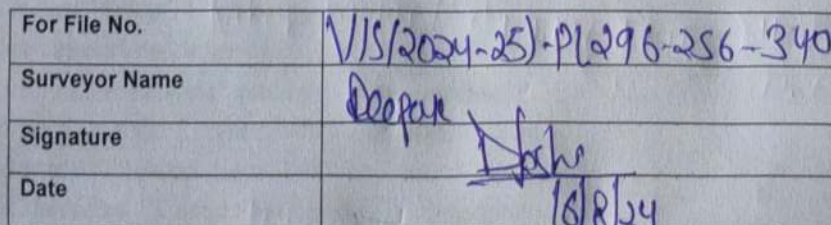 For File No. VIS(2024-25)-PL296-256-340
Surveyor Name Deepak
Signature Joshi
Date 16/8/24